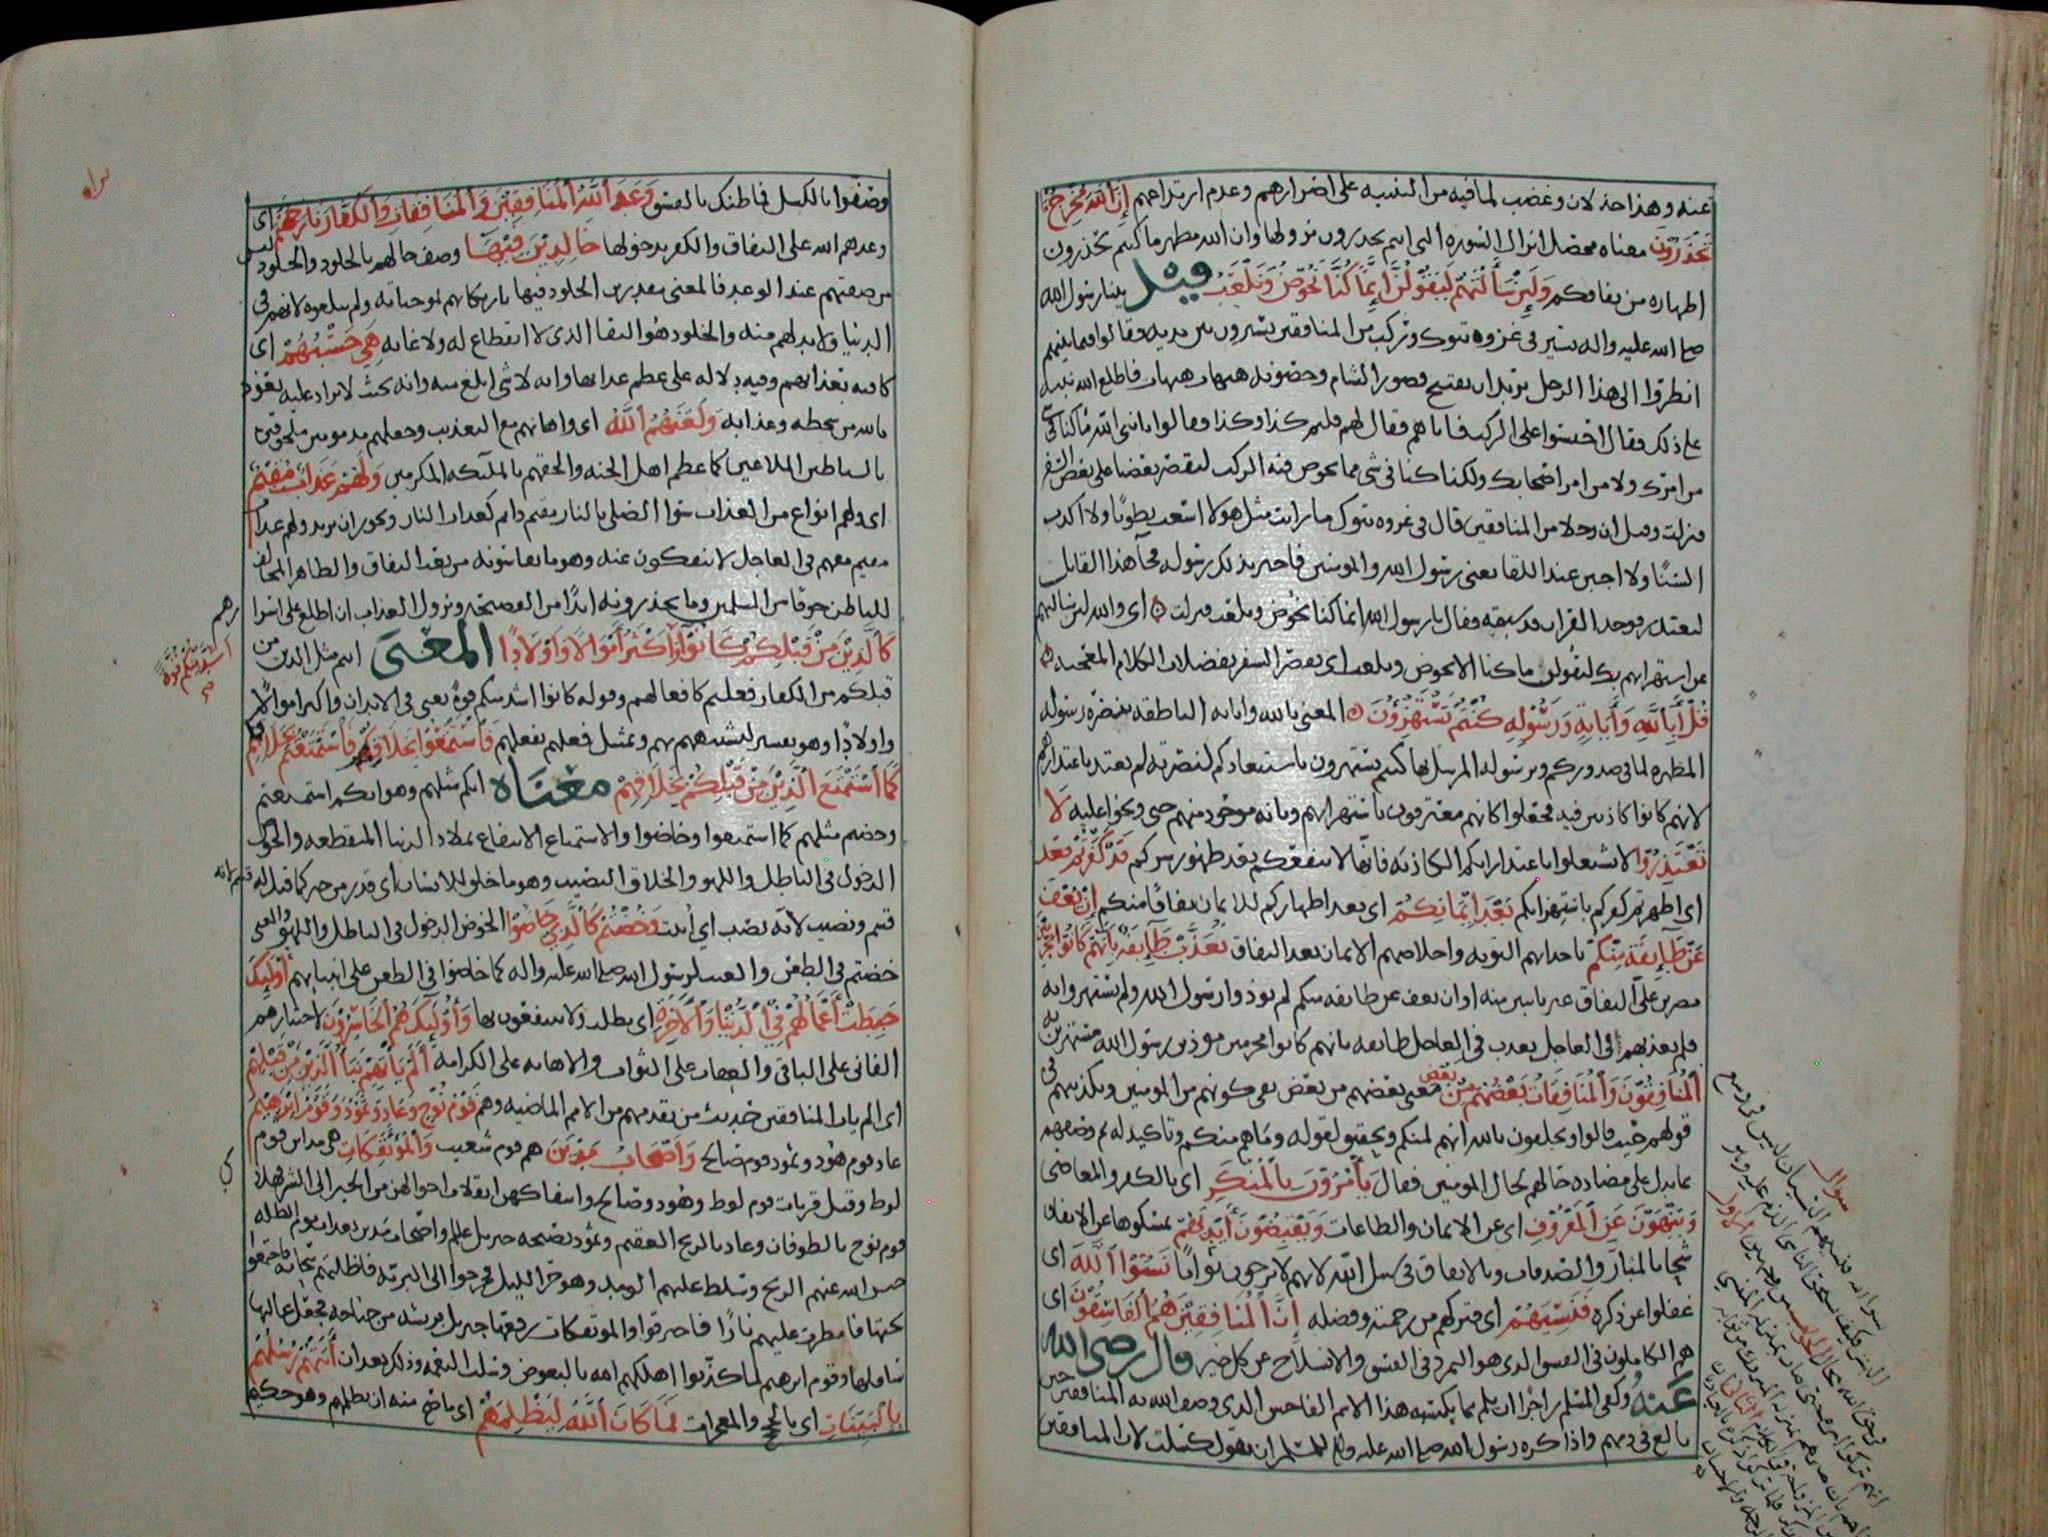 عنه وهذا خذلان وغضب لما فيه من التنبيه على اضرارهم وعدم ارتداعهم إِنَّ اللَّهَ مُخْرِجٌ مَا
تَحْذَرُونَ معناه محصل انزال السورة التي انتم تحذرون نزولها وان الله مظهر ما كنتم تحذرون
اظهاره من نفاقكم وَلَئِنْ سَأَلْتَهُمْ لَيَقُولُنَّ إِنَّمَا كُنَّا نَخُوضُ وَنَلْعَبُ قيل بينا رسول الله
صلى الله عليه واله يسير في غزوة تبوك وركب من المنافقين يسيرون بين يديه فقالوا فيما بينهم
انظروا الى هذا الرجل يريد ان يفتح قصور الشام وحصونه هيهات هيهات فاطلع الله نبيه
على ذلك فقال احبسوا على الركب فاتاهم فقال لهم قلتم كذا وكذا فقالوا يا نبي الله ما كنا في شي
من امرك ولا من امر اصحابك ولكنا كنا في شي مما يخوض فيه الركب ليقصر بعضنا على بعض السفر
فنزلت وقيل ان رجلا من المنافقين قال في غزوة تبوك ما رايت مثل هولا ارغب بطونا ولا اكذب
السنا ولا اجبن عند اللقا يعني رسول الله والمومنين فاخبر بذلك رسوله فجا هذا القايل
ليعتذر فوجد القران قد سبقه فقال يا رسول الله انما كنا نخوض ونلعب فنزلت اي والله لين سالتهم
عن استهزايهم بك ليقولن ما كنا الا نخوض ونلعب اي بعض السفر بفضلات الكلام المضحكه
قُلْ أَبِاللَّهِ وَآيَاتِهِ وَرَسُولِهِ كُنْتُمْ تَسْتَهْزِئُونَ المعنى بالله واياته الناطقه بنصرة رسوله
المظهره لما في صدوركم وبرسوله المرسل بها كنتم تستهزون باستبعادكم لنصرته لم يعتد باعتذارهم
لانهم كانوا كاذبين فيه فجعلوا كانهم معترفون باستهزايهم وبانه موجود منهم حتى وبخوا عليه لَا
تَعْتَذِرُوا لا تشتغلوا باعتذاراتكم الكاذبه فانها لا تنفعكم بعد ظهور سركم قَدْ كَفَرْتُمْ
اي اظهرتم كفركم باستهزايكم بَعْدَ إِيمَانِكُمْ اي بعد اظهاركم للايمان نفاقا منكم إِنْ نَعْفُ
عَنْ طَائِفَةٍ مِنْكُمْ باحداثهم التوبه واخلاصهم الايمان بعد النفاق نُعَذِّبْ طَائِفَةً بِأَنَّهُمْ كَانُوا مُجْرِمِينَ
مصرين على النفاق غير تايبين منه او ان نعف عن طايفه منكم لم يوذوا رسول الله ولم يستهزوا به
فلم يعذبهم في العاجل نعذب في العاجل طايفه بانهم كانوا مجرمين موذين رسول الله مستهزين به
الْمُنَافِقُونَ وَالْمُنَافِقَاتُ بَعْضُهُمْ مِنْ بَعْضٍ معنى بعضهم من بعض نفي كونهم من المومنين وتكذيبهم في
قولهم حيث قالوا ويحلفون بالله انهم لمنكم وتحقيق لقوله وما هم منكم وتاكيد له ثم وصفهم
بما يدل على مضادة حالهم لحال المومنين فقال يَأْمُرُونَ بِالْمُنْكَرِ اي بالكفر والمعاصي
وَيَنْهَوْنَ عَنِ الْمَعْرُوفِ اي عن الايمان والطاعات وَيَقْبِضُونَ أَيْدِيَهُمْ يمسكوها عن الانفاق
شحا بالمبار والصدقات وبالانفاق في سبيل الله لانهم لا يرجون ثوابا نَسُوا اللَّهَ اي
غفلوا عن ذكره فَنَسِيَهُمْ اي فتركهم من رحمته وفضله إِنَّ الْمُنَافِقِينَ هُمُ الْفَاسِقُونَ اي
هم الكاملون في الفسق الذي هو التمرد في الفسق والانسلاخ عن كل خير قال رضي الله
عنه وكفى المسلم زاجرا ان يلم بما يكسبه هذا الاسم الفاحش الذي وصف الله به المنافقين حين
بالغ في ذمهم واذا كره رسول الله صلى الله عليه واله للمسلم ان يقول كسلت لان المنافقين
سوال
وصفوا بالكسل فما ظنك بالفسق وَعَدَ اللَّهُ الْمُنَافِقِينَ وَالْمُنَافِقَاتِ وَالْكُفَّارَ نَارَ جَهَنَّمَ اي
وعدهم الله على النفاق والكفر بدخولها خَالِدِينَ فِيهَا وصف حالهم بالخلود والخلود ليس
من صفتهم عند الوعد فالمعنى مقدرين الخلود فيها
الدنيا ولا بد لهم منه والخلود هو البقا الذي لا انقطاع له ولا غايه هِيَ حَسْبُهُمْ اي
كافيه تعذيبهم وفيه دلاله على عظم عذابها وانه لا شي ابلغ منه وانه بحيث لا يزاد عليه نعوذ
بالله من سخطه وعذابه وَلَعَنَهُمُ اللَّهُ اي واهانهم مع التعذيب وجعلهم مذمومين ملحوقين
بالشياطين الملاعين كما عظم اهل الجنه والحقهم بالملئكه المكرمين وَلَهُمْ عَذَابٌ مُقِيمٌ
اي ولهم انواع من العذاب سوا الصلي بالنار مقيم دايم كعذاب النار ويجوز ان يريد ولهم عذاب
مقيم معهم في العاجل لا ينفكون عنه وهو ما يقاسونه من تعب النفاق والظاهر المخالف
للباطن خوفا من المسلمين وما يحذرونه ابدا من الفضيحه ونزول العذاب ان اطلع على اسرارهم
كَالَّذِينَ مِنْ قَبْلِكُمْ كَانُوا أَكْثَرَ أَمْوَالًا وَأَوْلَادًا المعنى انتم مثل الذين من
أَشَدَّ مِنْكُمْ قُوَّةً
قبلكم من الكفار فعلتم كافعالهم وقوله كانوا اشد منكم قوة يعني في الابدان واكثر اموالا
واولادا وهو تفسير لشبههم بهم وتمثيل فعلهم بفعلهم فَاسْتَمْتَعُوا بِخَلَاقِهِمْ فَاسْتَمْتَعْتُمْ بِخَلَاقِكُمْ
كَمَا اسْتَمْتَعَ الَّذِينَ مِنْ قَبْلِكُمْ بِخَلَاقِهِمْ معناه انكم مثلهم وهو انكم استمتعتم
وخضتم مثلهم كما استمتعوا وخاضوا والاستمتاع الانتفاع بملاذ الدنيا المنقطعه والخوض
الدخول في الباطل واللهو والخلاق النصيب وهو ما خلق للانسان اي قدر من خير كما قيل له قسم لانه
قسم ونصيب لانه نصب اي اثبت وَخُضْتُمْ كَالَّذِي خَاضُوا الخوض الدخول في الباطل واللهو والمعنى
خضتم في الطعن والعيب لرسول الله صلى الله عليه واله كما خاضوا في الطعن على انبيايهم أُولَئِكَ
حَبِطَتْ أَعْمَالُهُمْ فِي الدُّنْيَا وَالْآخِرَةِ اي بطلت ولا ينتفعون بها وَأُولَئِكَ هُمُ الْخَاسِرُونَ لاختيارهم
الفاني على الباقي والعقاب على الثواب والاهانه على الكرامه أَلَمْ يَأْتِهِمْ نَبَأُ الَّذِينَ مِنْ قَبْلِهِمْ
اي الم يات المنافقين خبر من تقدمهم من الامم الماضيه وهم قَوْمِ نُوحٍ وَعَادٍ وَثَمُودَ وَقَوْمِ إِبْرَاهِيمَ
عاد قوم هود وثمود قوم صالح وَأَصْحَابِ مَدْيَنَ هم قوم شعيب وَالْمُؤْتَفِكَاتِ هي مداين قوم
لوط وقيل قريات قوم لوط وهود وصالح وايتفاكهن انقلاب احوالهن من الخير الى الشر فهلك
قوم نوح بالطوفان وعاد بالريح العقيم وثمود بصيحه جبريل عليلم واصحاب مدين بعذاب يوم الظله
حبس الله عنهم الريح وسلط عليهم الومد وهو حر الليل فخرجوا الى البريه فاظلتهم سحابه فاجتمعوا
تحتها فامطرت عليهم نارا فاحترقوا والموتفكات رفعها جبريل بريشه من جناحه فجعل عاليها
سافلها وقوم ابرهيم لما كذبوا اهلكهم الله بالبعوض وسلب النعمه وذلك بعد ان أَتَتْهُمْ رُسُلُهُمْ
بِالْبَيِّنَاتِ اي بالحجج والمعجزات فَمَا كَانَ اللَّهُ لِيَظْلِمَهُمْ اي ما صح منه ان يظلمهم وهو حكيم